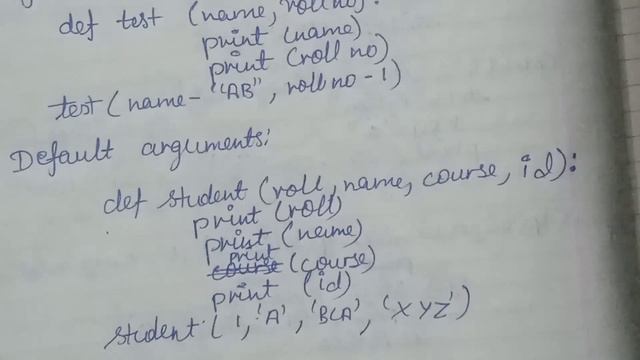 def test (name, roll no):
print (name)
print (roll no)
test (name- "AB", roll no - 1)
Default arguments:
def student (roll, name, course, id):
print (roll)
print (name)
print (course)
print (id)
student (1, 'A', 'BCA', 'XYZ')